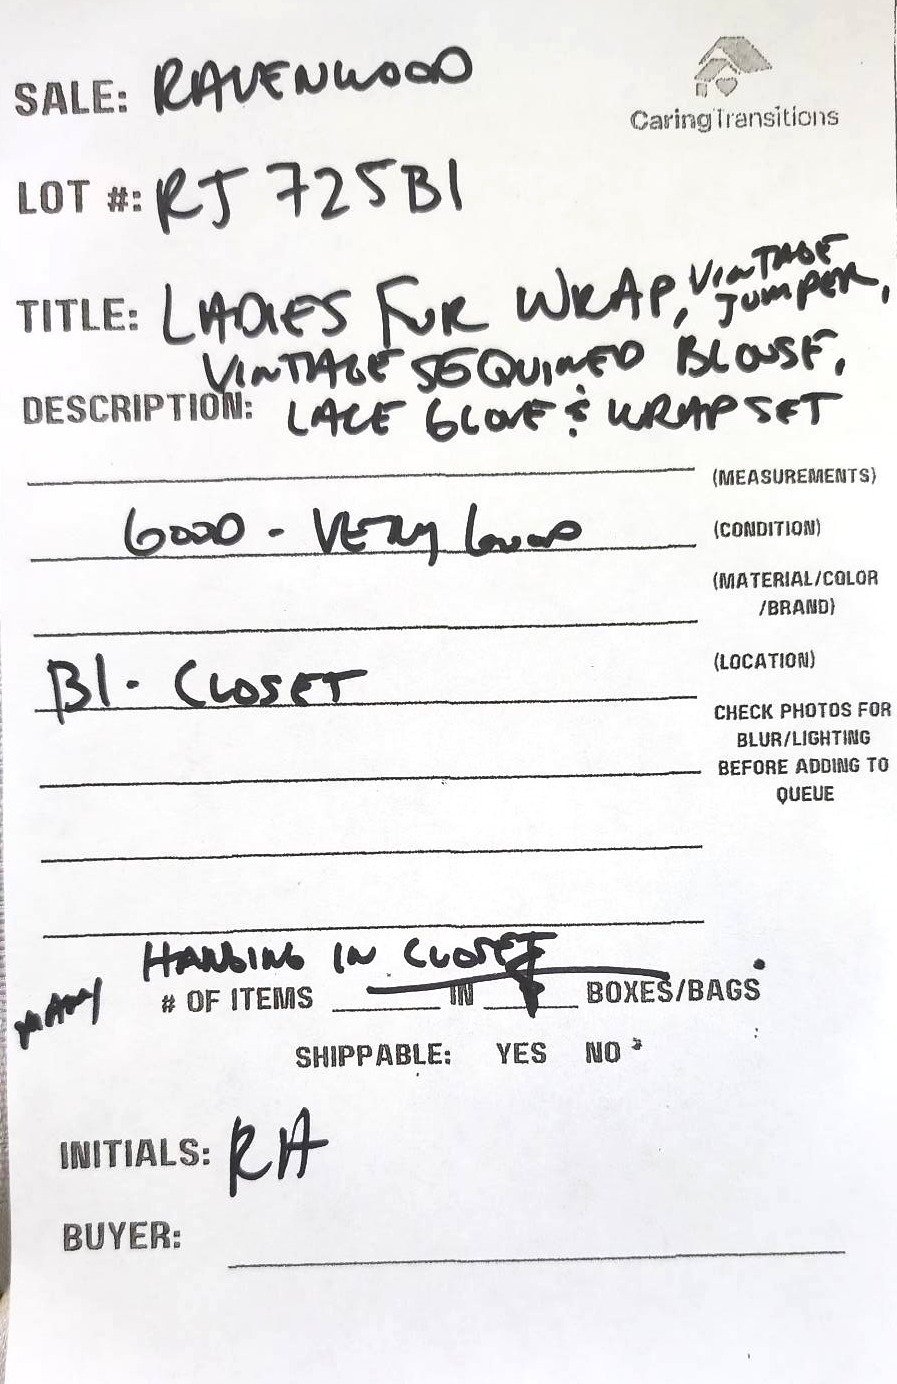 SALE: RAVENWOOD
CaringTransitions
LOT #: RJ 725B1
TITLE: LADIES FUR WRAP, VINTAGE JUMPER,
VINTAGE SEQUINED BLOUSE,
DESCRIPTION: LACE GLOVE & WRAP SET
(MEASUREMENTS)
GOOD - VERY GOOD (CONDITION)
(MATERIAL/COLOR
/BRAND)
B1 - CLOSET (LOCATION)
CHECK PHOTOS FOR
BLUR/LIGHTING
BEFORE ADDING TO
QUEUE
HANGING IN CLOSET
MANY # OF ITEMS IN BOXES/BAGS
SHIPPABLE: YES NO
INITIALS: RA
BUYER: